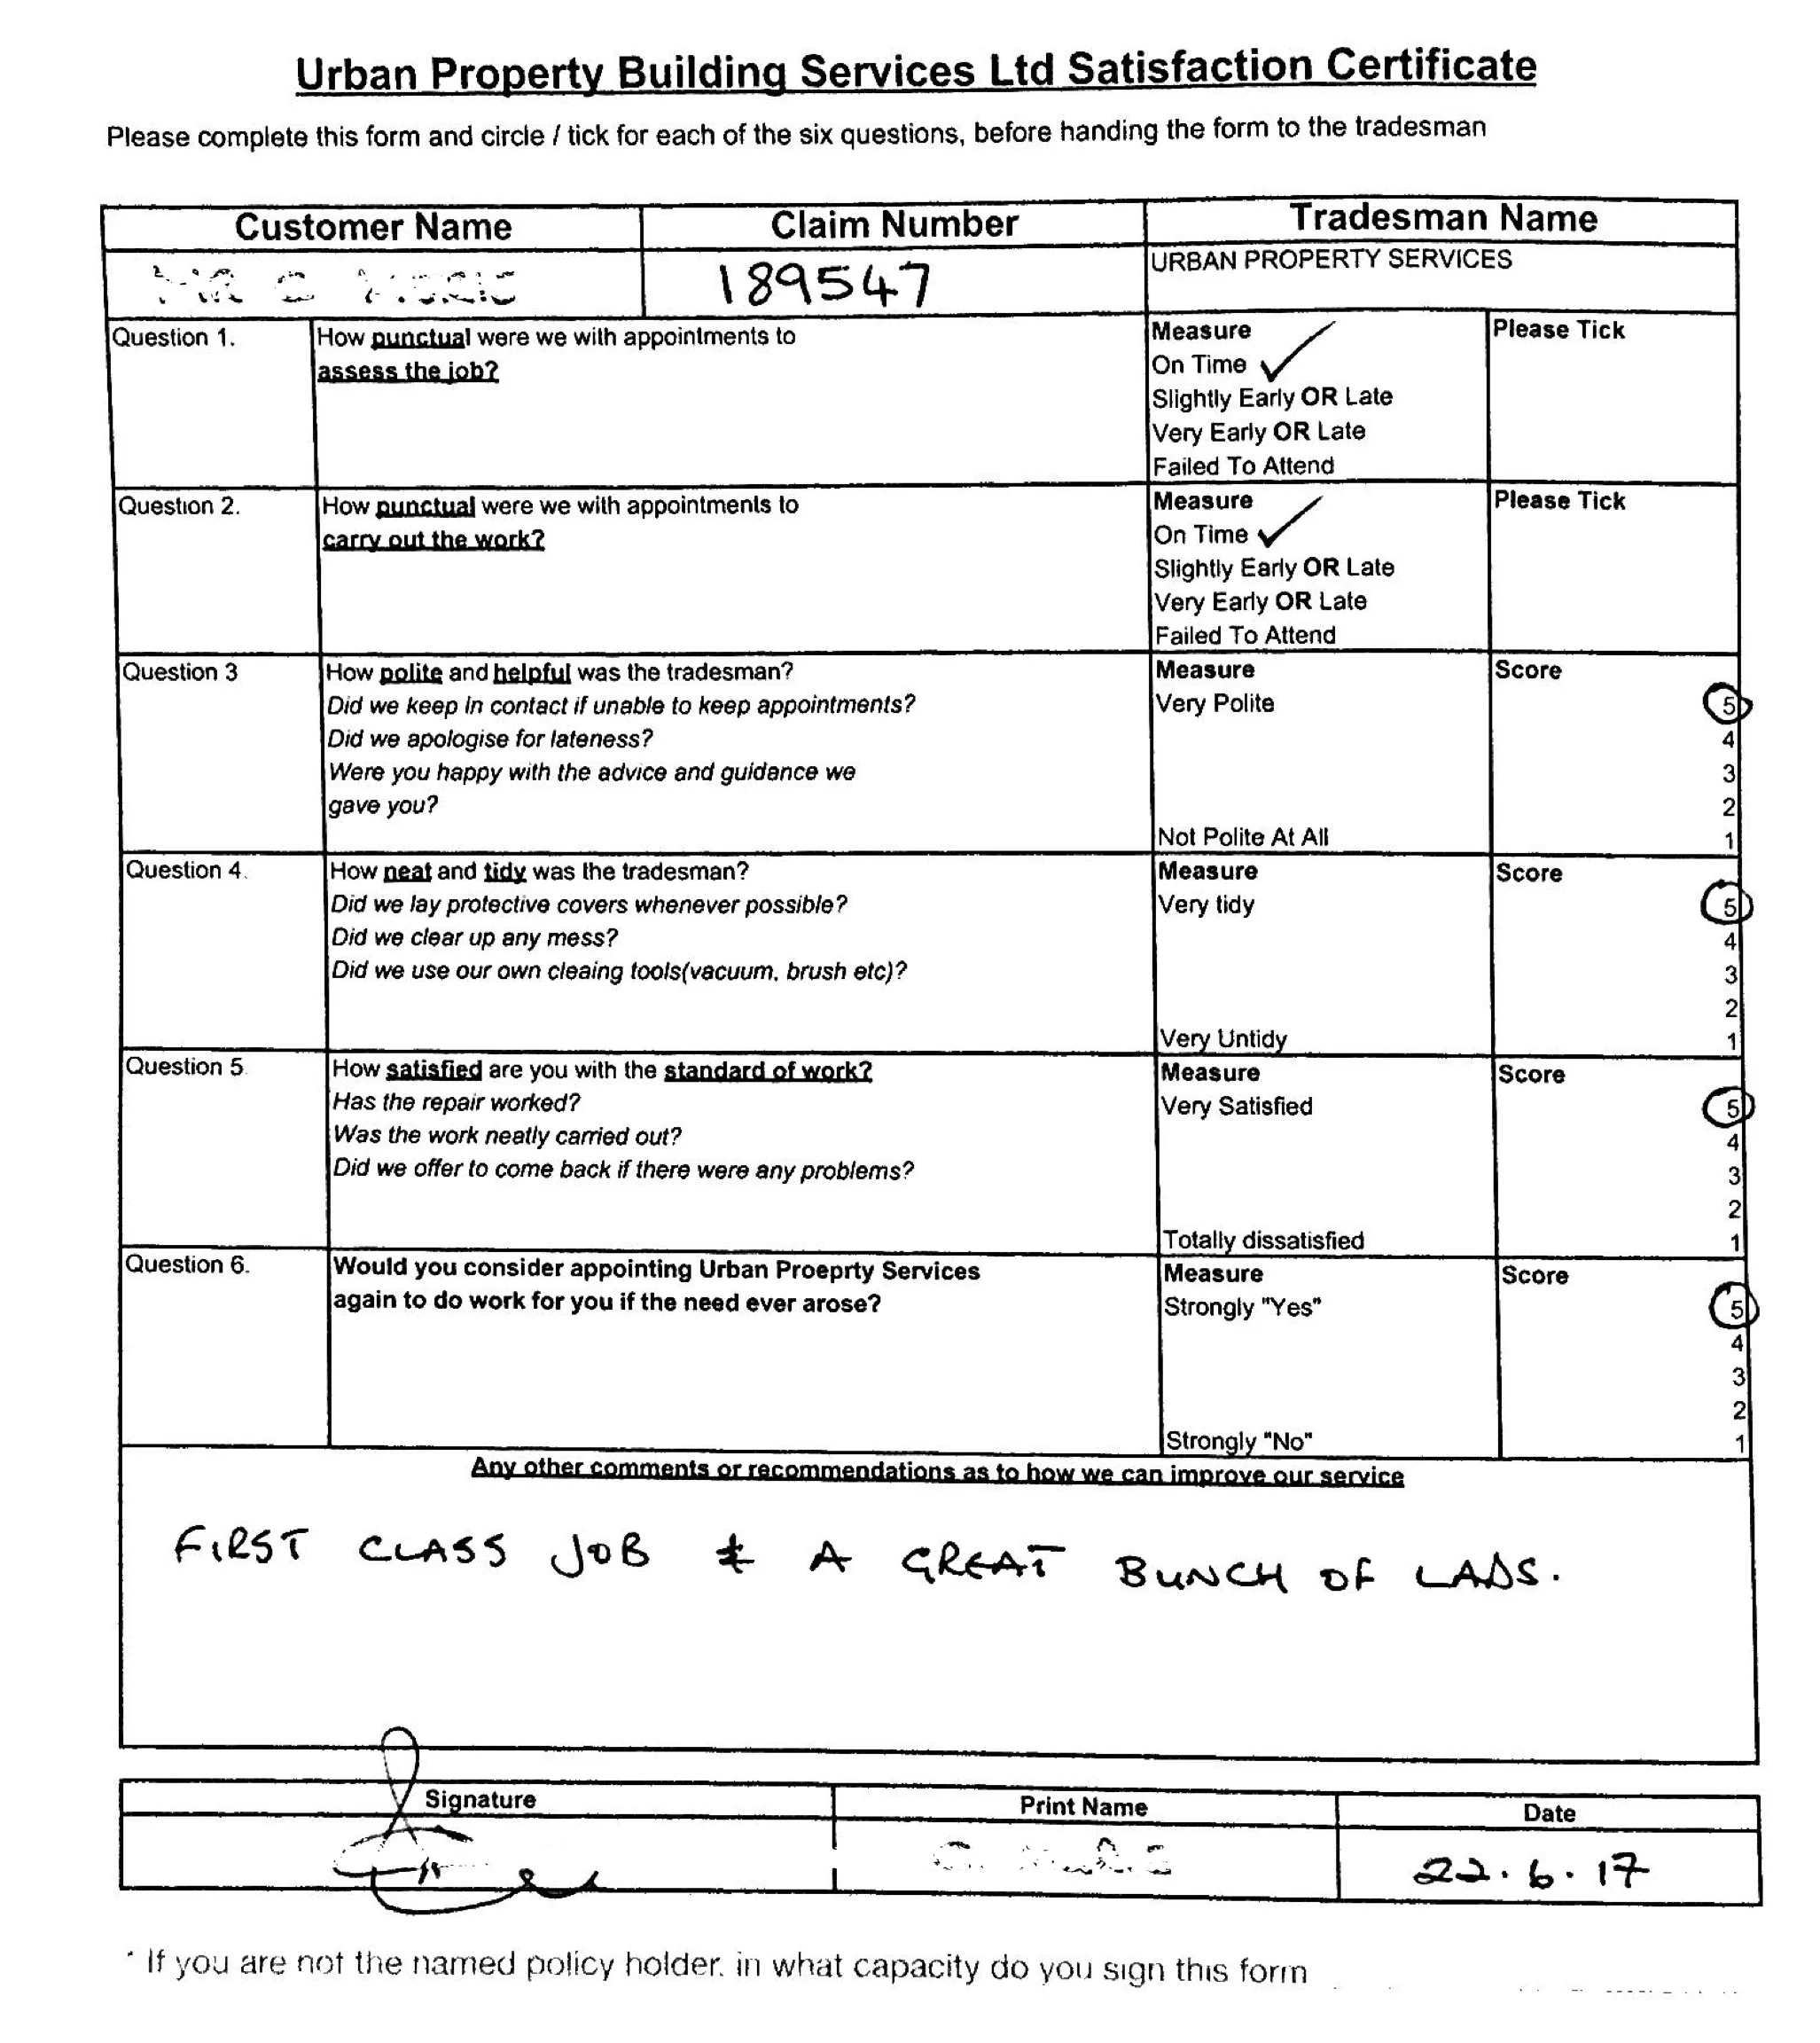 Urban Property Building Services Ltd Satisfaction Certificate
Please complete this form and circle / tick for each of the six questions, before handing the form to the tradesman
Customer Name Claim Number Tradesman Name
MR 189547 URBAN PROPERTY SERVICES
Question 1. How punctual were we with appointments to Measure Please Tick
assess the job? On Time ✓
Slightly Early OR Late
Very Early OR Late
Failed To Attend
Question 2. How punctual were we with appointments to Measure Please Tick
carry out the work? On Time ✓
Slightly Early OR Late
Very Early OR Late
Failed To Attend
Question 3 How polite and helpful was the tradesman? Measure Score
Did we keep in contact if unable to keep appointments? Very Polite 5
Did we apologise for lateness? 4
Were you happy with the advice and guidance we 3
gave you? 2
Not Polite At All 1
Question 4. How neat and tidy was the tradesman? Measure Score
Did we lay protective covers whenever possible? Very tidy 5
Did we clear up any mess? 4
Did we use our own cleaing tools(vacuum, brush etc)? 3
2
Very Untidy 1
Question 5. How satisfied are you with the standard of work? Measure Score
Has the repair worked? Very Satisfied 5
Was the work neatly carried out? 4
Did we offer to come back if there were any problems? 3
2
Totally dissatisfied 1
Question 6. Would you consider appointing Urban Proeprty Services Measure Score
again to do work for you if the need ever arose? Strongly "Yes" 5
4
3
2
Strongly "No" 1
Any other comments or recommendations as to how we can improve our service
FIRST CLASS JOB & A GREAT BUNCH OF LADS.
Signature Print Name Date
22.6.17
* If you are not the named policy holder. in what capacity do you sign this form